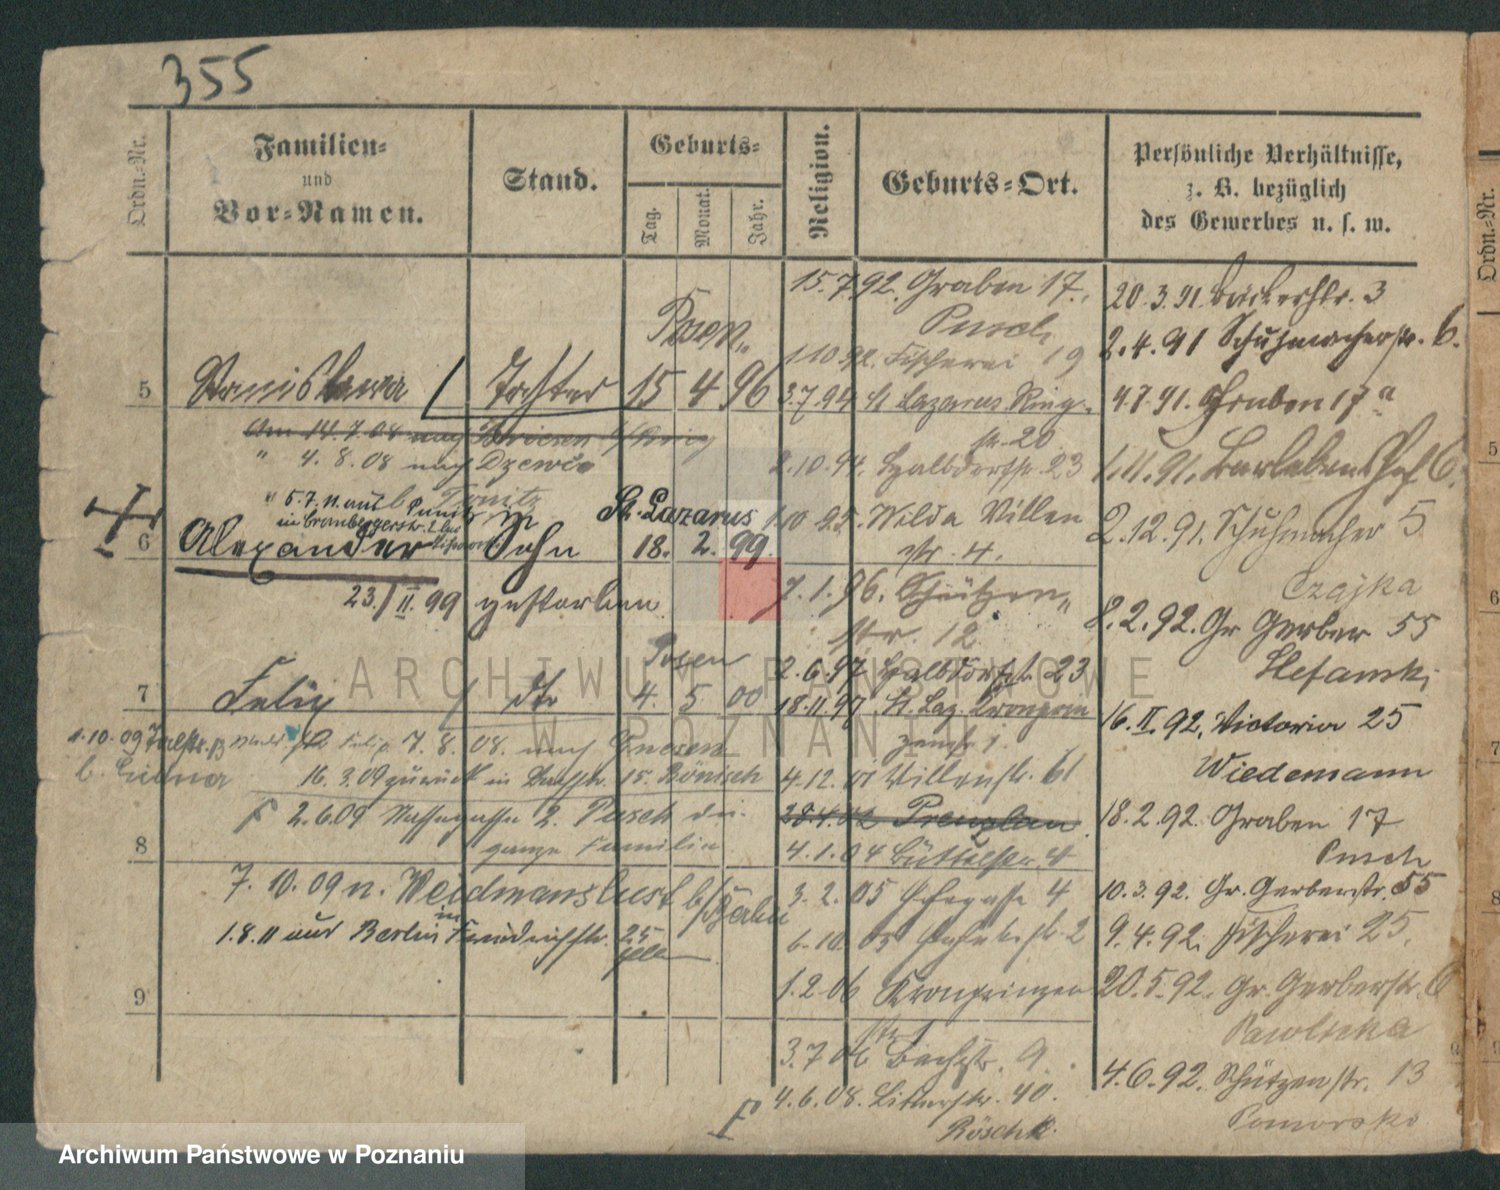 355
Ordn.-Nr.
Familien-
und
Vor-Namen.
Stand.
Geburts-
Tag.
Monat.
Jahr.
Religion.
Geburts-Ort.
Persönliche Verhältnisse,
z. B. bezüglich
des Gewerbes u. s. w.
Posen
5 Stanislawa Tochter 15 4 96
Am 14.7.08 nach
" 4.8.08 nach
" 5.7.11. aus
in Brombergerstr. 2
in St. Lazarus
6 Alexander Sohn 18. 2. 99.
23./II. 99 gestorben
Posen
7 Felix dto 4. 5. 00
1.10.09
7.8.08. nach Gnesen
16.3.09 zurück in 15. Bönisch
2.6.09 2. Pusch die
8 ganze Familie
7.10.09 n. Weidmanslust b/Berlin
1.8.11 aus Berlin in Friedrichstr. 25
9
15.7.92. Graben 17.
Pusch
1.10.92. Fischerei 19
3.7.94 St Lazarus Ring-
str. 20
2.10.94. Halbdorfstr. 23
1.10 95. Wilda Villen
str. 4.
7.1.96. Schützen-
str. 12
2.6.97 Halbdorfstr. 23
18.11.97 St. Laz. Kronprin
zenstr. 1
4.12.01 Villenstr. 61
28.4.02 Prenzlau
4.1.04 Büttelstr. 4
3.2.05 4
6.10.05 2
1.2.06 Kronprinzen
str. 1
3.7.06 Bachstr. 9.
4.6.08. 40.
Röschk
20.3.91. Bäckerstr. 3
2.4.91 Schuhmacherstr. 6.
4.7.91. Graben 17a
1.11.91. Barlebenshof 6.
2.12.91. Schuhmacher 5
Czajka
8.2.92. Gr Gerber 55
Stefanski
16.II.92. Victoria 25
Wiedemann
18.2.92. Graben 17
Pusch
10.3.92. Gr. Gerberstr. 55
9.4.92. Fischerei 25.
20.5.92. Gr. Gerberstr. 6
4.6.92. Schützenstr. 13
Pomorski
Ordn.-Nr.
5
6
7
8
9
ARCHIWUM PAŃSTWOWE
W POZNANIU
Archiwum Państwowe w Poznaniu